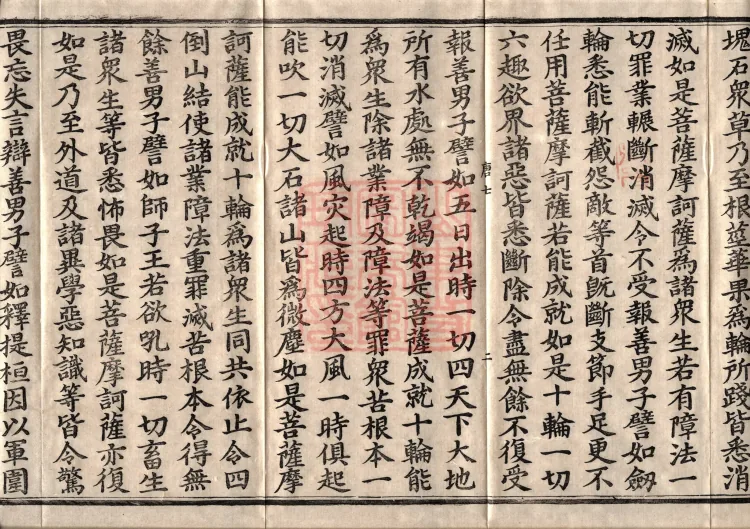 塊石衆草乃至根莖華果為輪所踐皆悉消
滅如是菩薩摩訶薩為諸衆生若有障法一
切罪業輾斷消滅令不受報善男子譬如劒
輪悉能斬截怨敵等首旣斷支節手足更不
任用菩薩摩訶薩若能成就如是十輪一切
六趣欲界諸惡皆悉斷除令盡無餘不復受
唐七 二
報善男子譬如五日出時一切四天下大地
所有水處無不乾竭如是菩薩成就十輪能
為衆生除諸業障及障法等罪衆苦根本一
切消滅譬如風灾起時四方大風一時俱起
能吹一切大石諸山皆為微塵如是菩薩摩
訶薩能成就十輪為諸衆生同共依止令四
倒山結使諸業障法重罪滅苦根本令得無
餘善男子譬如師子王若欲吼時一切畜生
諸衆生等皆悉怖畏如是菩薩摩訶薩亦復
如是乃至外道及諸異學惡知識等皆令驚
畏忘失言辯善男子譬如釋提桓因以軍圍